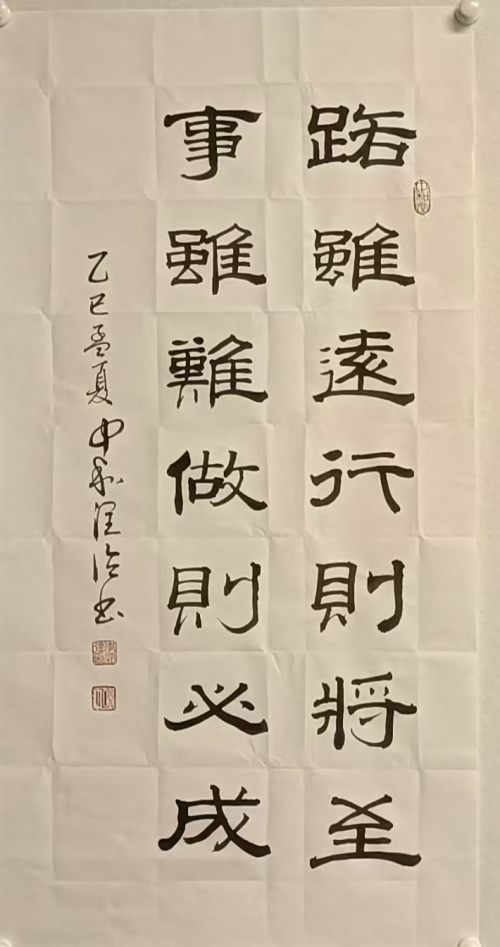 路雖遠行則將至
事雖難做則必成
乙巳孟夏中和
書